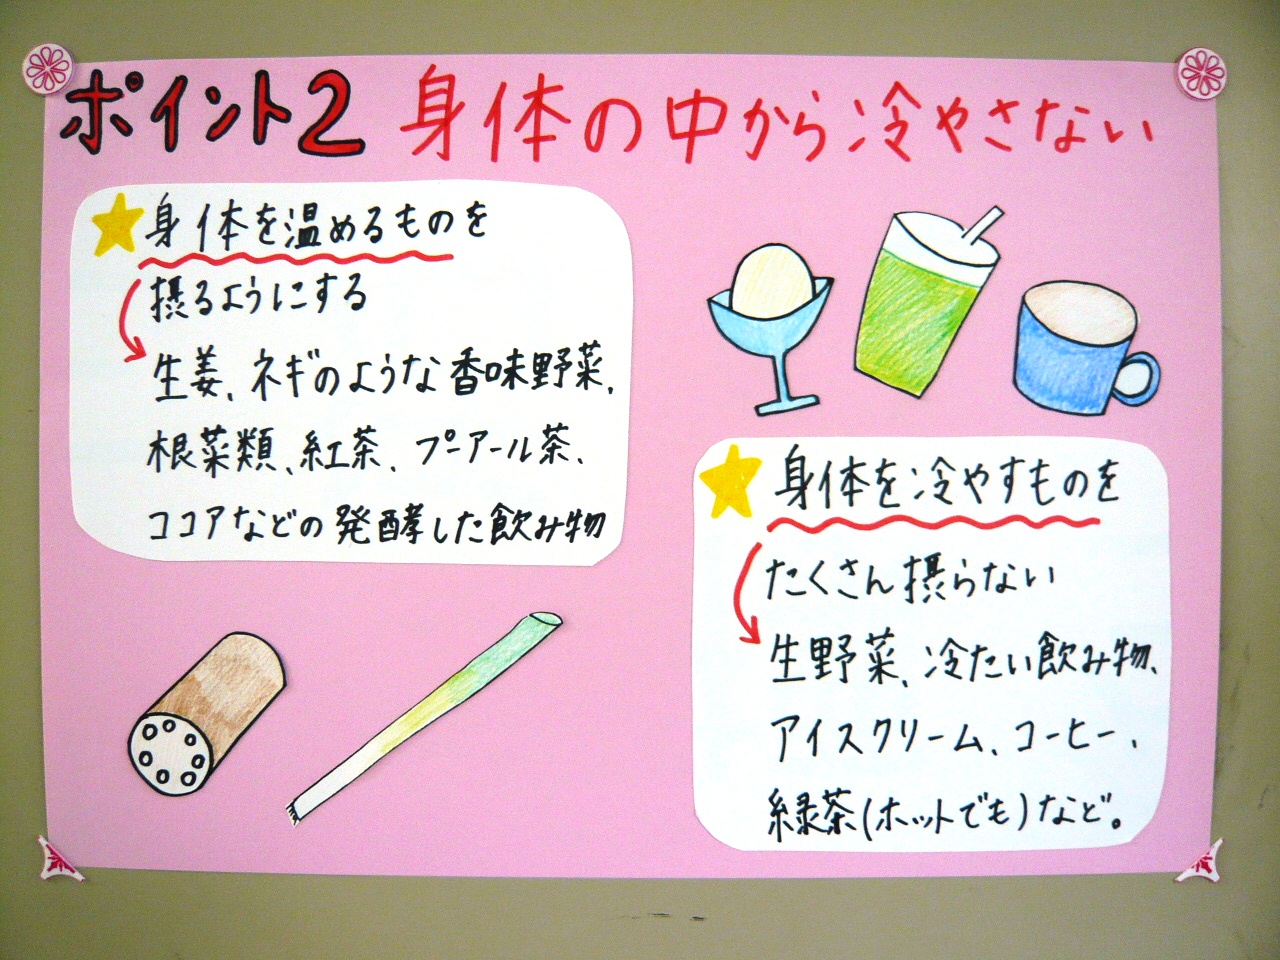 ポイント2 身体の中から冷やさない
★身体を温めるものを
摂るようにする
生姜、ネギのような香味野菜、
根菜類、紅茶、プーアール茶、
ココアなどの発酵した飲み物
★身体を冷やすものを
たくさん摂らない
生野菜、冷たい飲み物、
アイスクリーム、コーヒー、
緑茶(ホットでも)など。